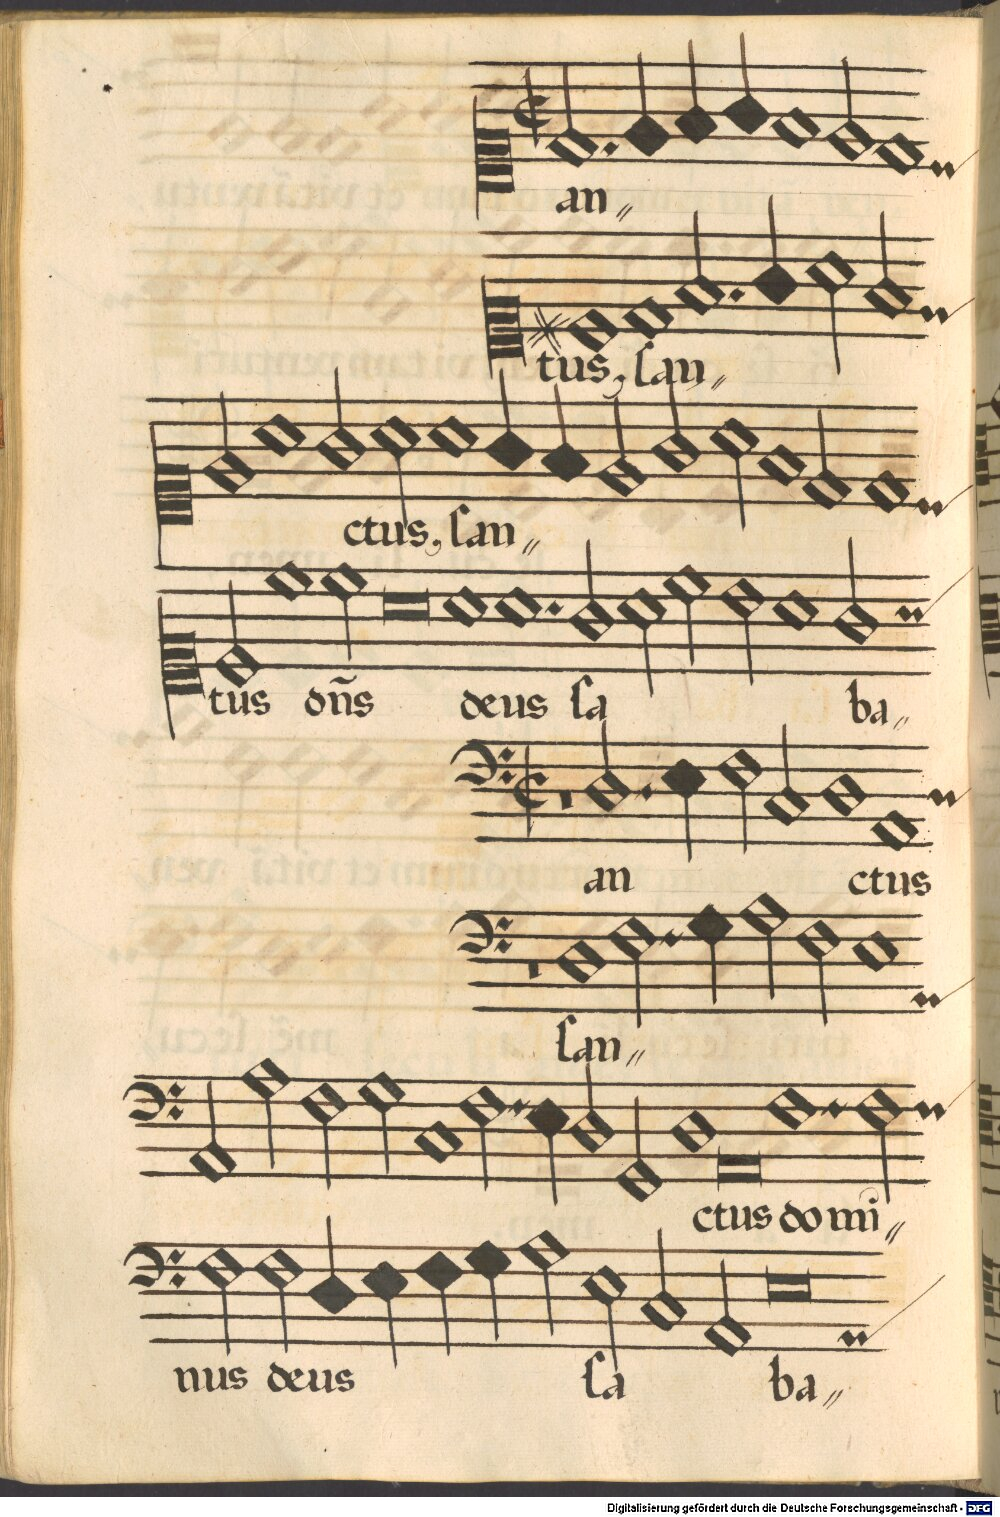 an〃
tus, san〃
ctus, san〃
tus dn̄s deus sa ba〃
an ctus
san〃
ctus do mi〃
nus deus sa ba〃
Digitalisierung gefördert durch die Deutsche Forschungsgemeinschaft - DFG